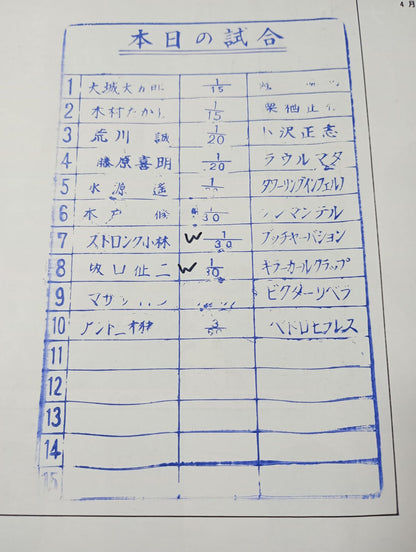 4月
本日の試合
1 大城大五郎 1/15
2 木村たかし 1/15
3 荒川 誠 1/20 小沢正志
4 藤原喜明 1/20 ラウルマタ
5 永源遥 タワーリングインフェルノ
6 木戸 修 1/30
7 ストロング小林 W 1/30 ブッチャーバション
8 坂口征二 W 1/30 キラーカールクラップ
9 ビクターリベラ
10 アントニオ猪木 3/ ペドロモラレス
11
12
13
14
15